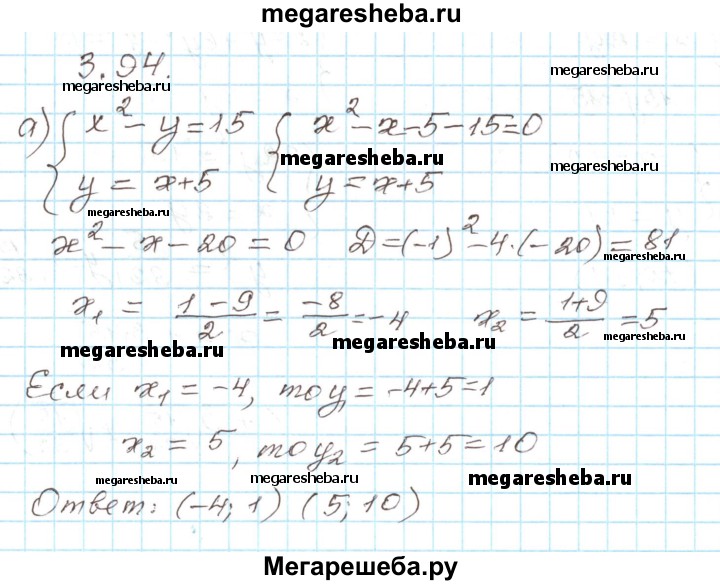 megaresheba.ru
3.94.
megaresheba.ru megaresheba.ru
а) { x² - y = 15 { x² - x - 5 - 15 = 0
megaresheba.ru megaresheba.ru
y = x+5 y = x+5
megaresheba.ru
x² - x - 20 = 0 D = (-1)² - 4·(-20) = 81
megaresheba.ru
x₁ = (1-9)/2 = -8/2 = -4 x₂ = (1+9)/2 = 5
megaresheba.ru megaresheba.ru megaresheba.ru
Если x₁ = -4, то y₁ = -4+5=1
x₂ = 5, то y₂ = 5+5=10
megaresheba.ru megaresheba.ru megaresheba.ru
Ответ: (-4; 1) (5; 10)
Мегарешеба.ру